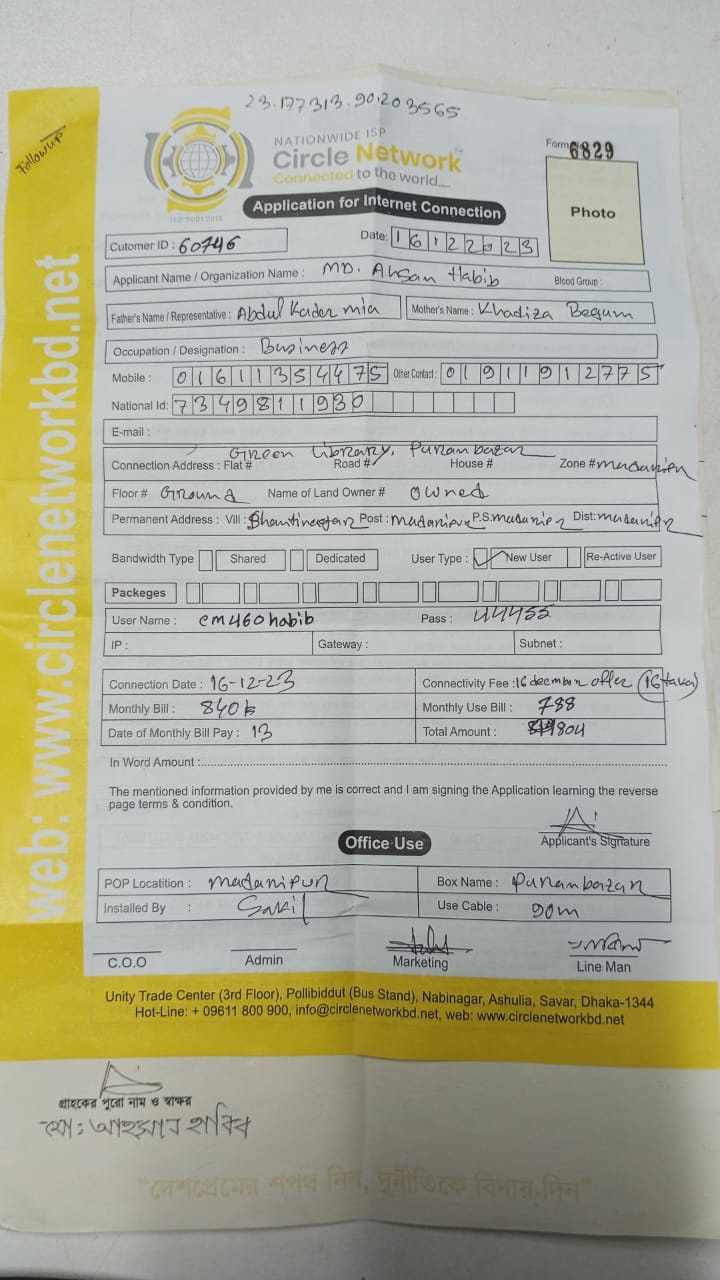 23.177313.90.203565
Followup
NATIONWIDE ISP
Circle Network
Connected to the world.....
ISO 9001:2015
Form 6829
Photo
Application for Internet Connection
Cutomer ID : 60746 Date: 16122023
Applicant Name / Organization Name : MD. Ahsan Habib Blood Group :
Father's Name / Representative : Abdul Kader mia Mother's Name : Khadiza Begum
Occupation / Designation : Business
Mobile : 01611354475 Other Contact : 01911912775
National Id: 7349811930
E-mail :
Green Library, Puranbazar
Connection Address : Flat # Road # House # Zone # madaripur
Floor # Ground Name of Land Owner # Owned
Permanent Address : Vill : Shantinagar Post : madaripur P.S. madaripur Dist: madaripur
Bandwidth Type Shared Dedicated User Type : New User Re-Active User
Packeges
User Name : cm460habib Pass : 44455
IP : Gateway : Subnet :
Connection Date : 16-12-23 Connectivity Fee : 16 decembar offer (16 taka)
Monthly Bill : 840 Monthly Use Bill : 788
Date of Monthly Bill Pay : 13 Total Amount : 804
In Word Amount :
The mentioned information provided by me is correct and I am signing the Application learning the reverse
page terms & condition.
Applicant's Signature
Office Use
POP Locatition : madaripur Box Name : Puranbazar
Installed By : Sakil Use Cable : 90m
C.O.O Admin Marketing Line Man
Unity Trade Center (3rd Floor), Pollibiddut (Bus Stand), Nabinagar, Ashulia, Savar, Dhaka-1344
Hot-Line: + 09611 800 900, info@circlenetworkbd.net, web: www.circlenetworkbd.net
web: www.circlenetworkbd.net
গ্রাহকের পুরো নাম ও স্বাক্ষর
মো: আহসান হাবিব
"দেশপ্রেমের শপথ নিন, দুর্নীতিকে বিদায় দিন"